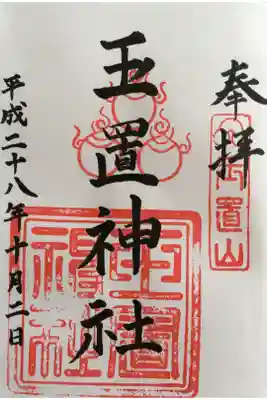 奉拝
玉置山
玉置神社
玉置神社
平成二十八年十月二日